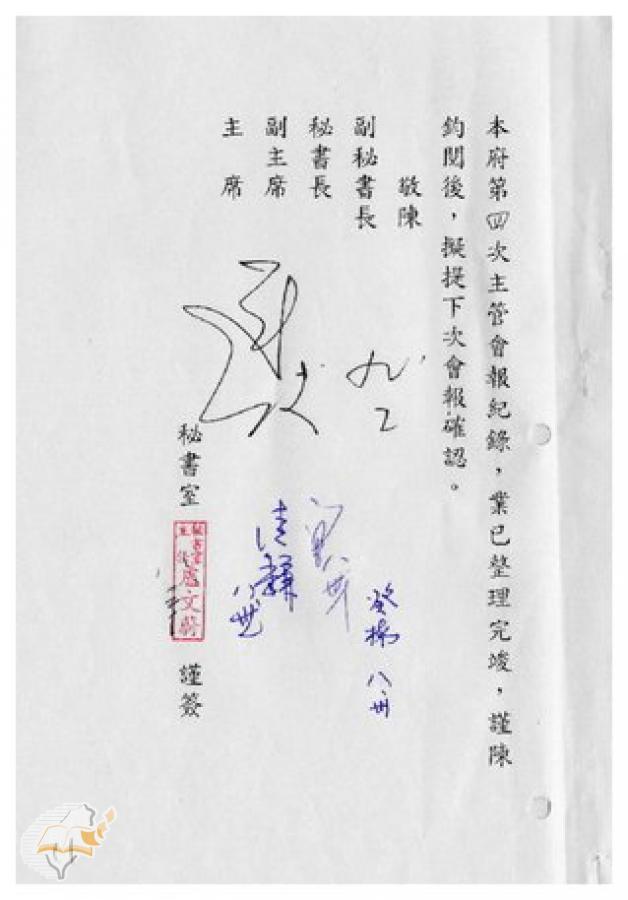 本府第四次主管會報紀錄，業已整理完竣，謹陳
鈞閱後，擬提下次會報確認。
敬陳
副秘書長
秘書長
副主席
主席
九
二
八、卅
秘書室
秘書室
主任
盧文
謹簽